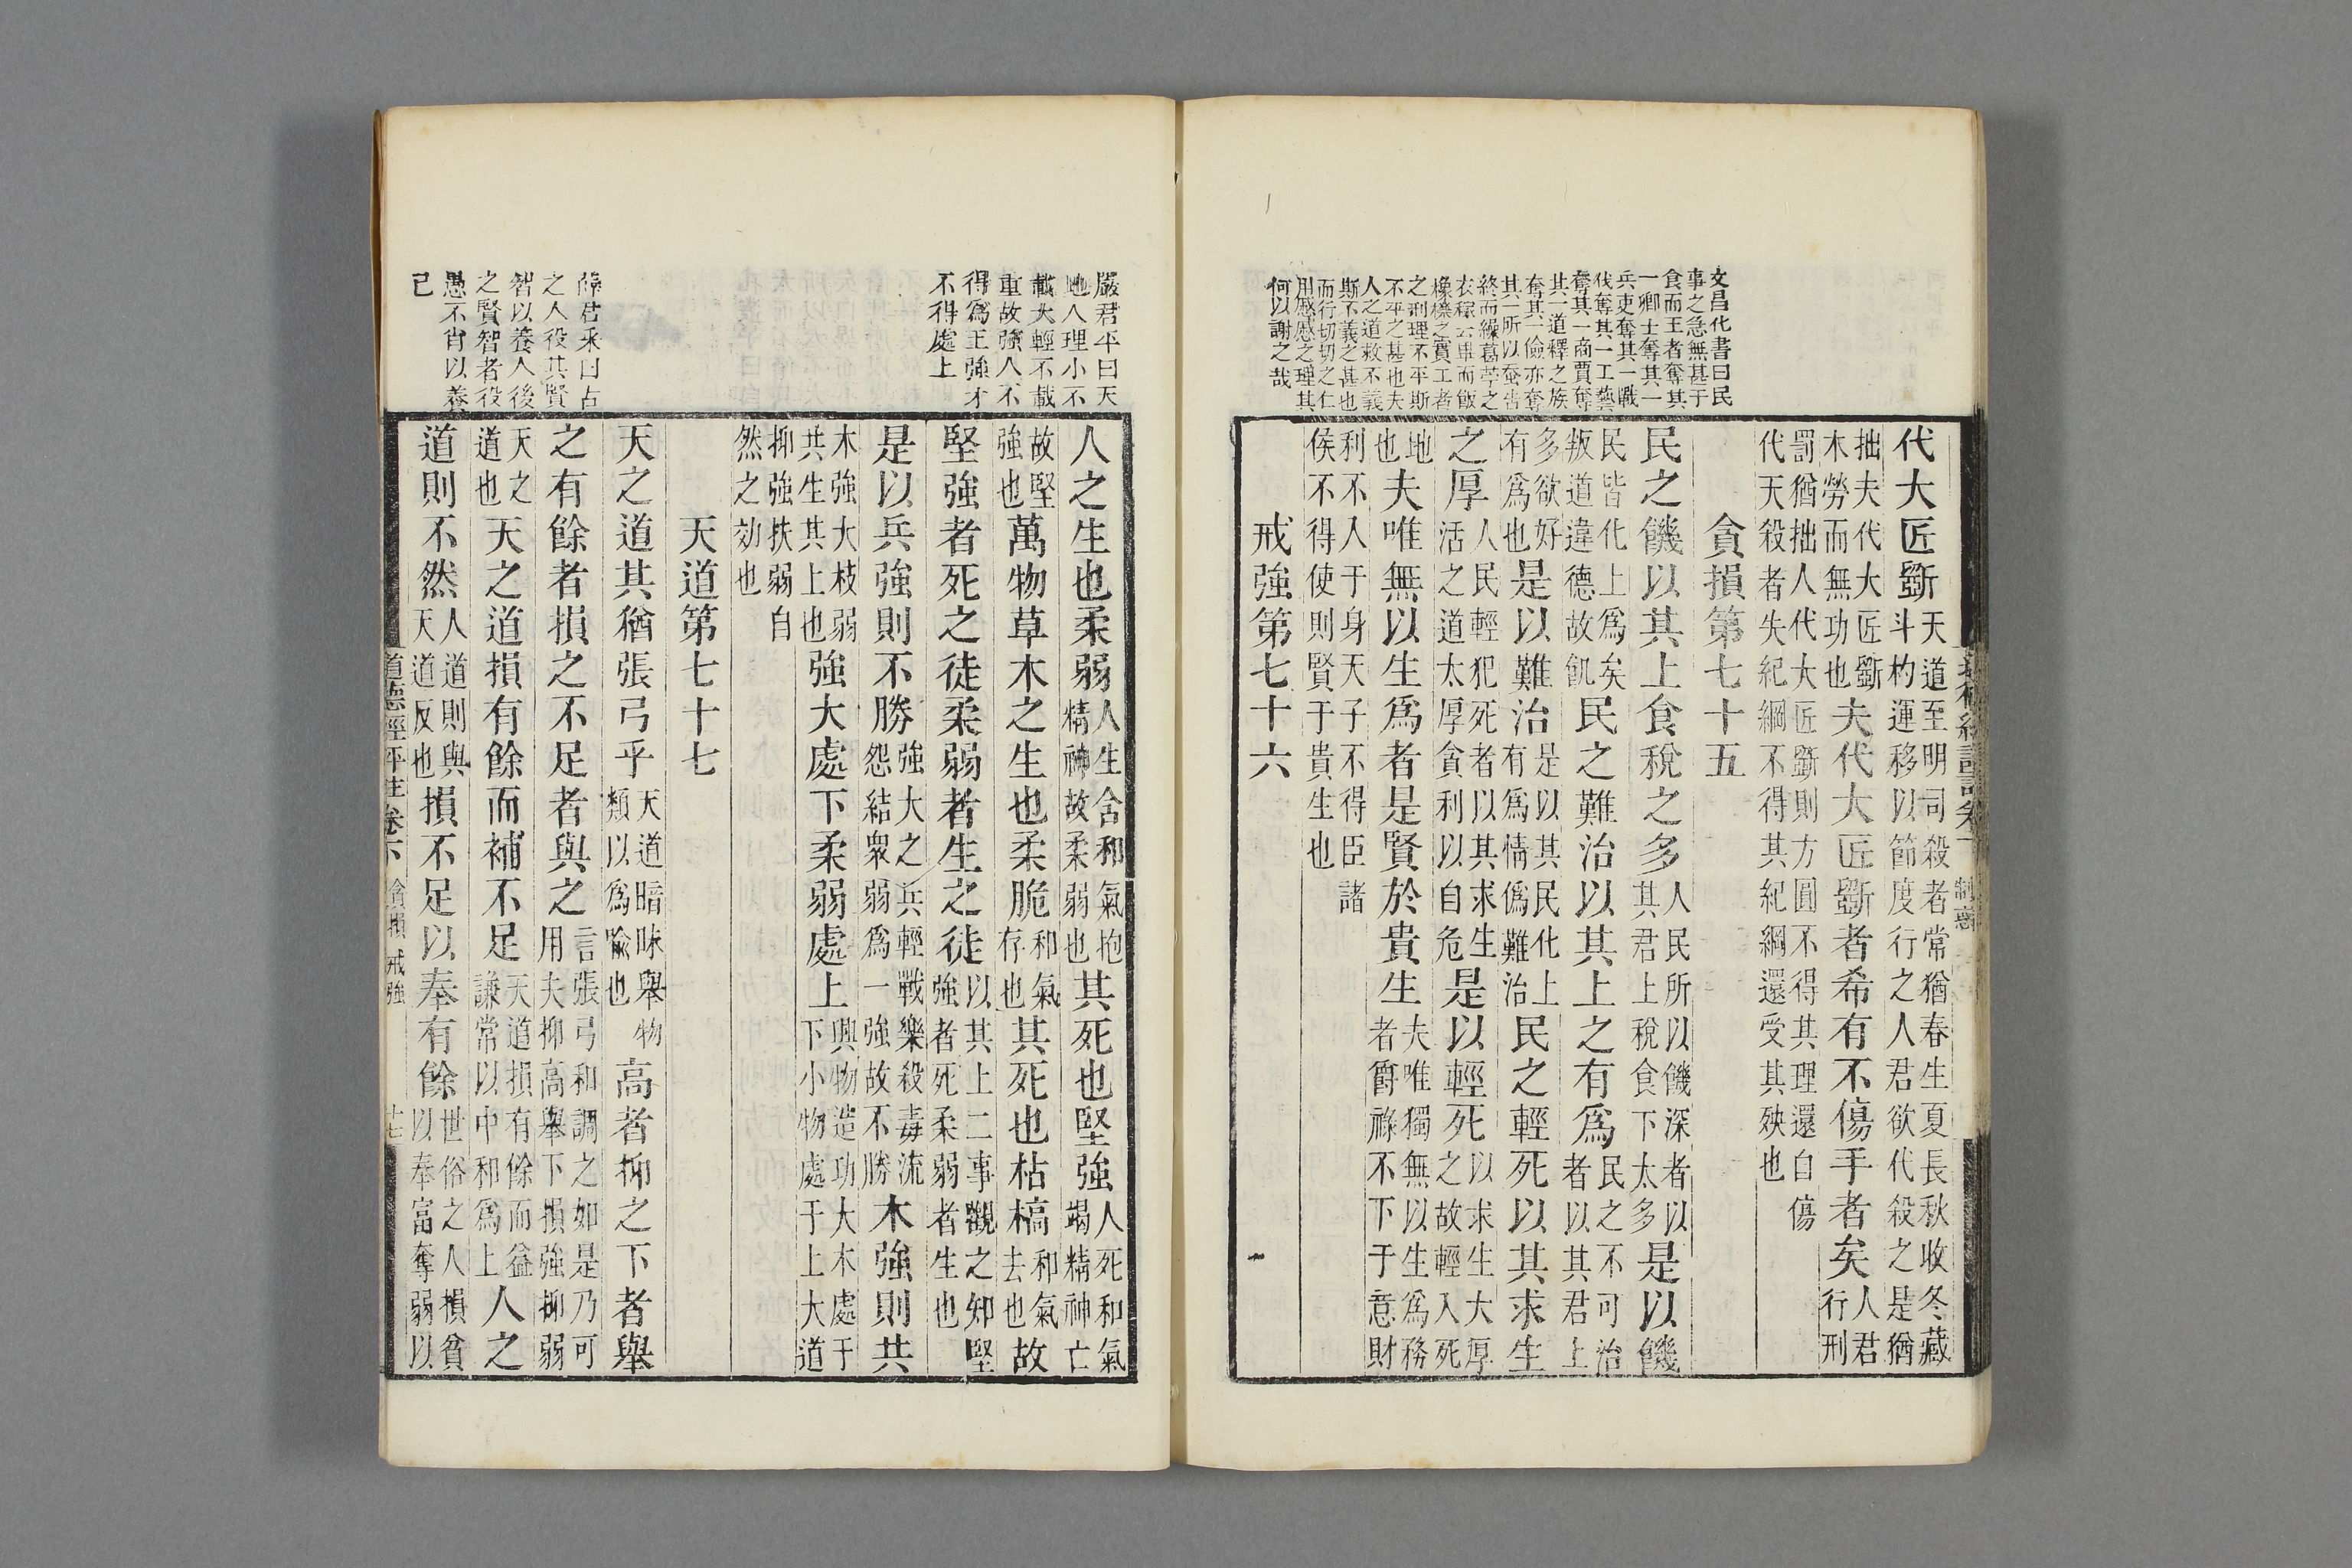 文昌化書曰民
事之急無甚于
食而王者奪其
一卿士奪其一
兵吏奪其一戰
伐奪其一工藝
奪其一商賈奪
其一道釋之族
奪其一儉亦奪
其一所以蚕告
終而繰葛苧之
衣稼云畢而飯
橡櫟之實工者
之刑理不平斯
不平之甚也夫
人之道救不義
斯不義之甚也
而行切切之仁
用慼慼之理其
何以謝之哉
代大匠斵天道至明司殺者常猶春生夏長秋收冬藏
斗杓運移以節度行之人君欲代殺之是猶
拙夫代大匠斵
木勞而無功也夫代大匠斵者希有不傷手者矣人君
行刑
罰猶拙人代大匠斵則方圓不得其理還自傷
代天殺者失紀綱不得其紀綱還受其殃也
貪損第七十五
民之饑以其上食稅之多人民所以饑深者以
其君上稅食下太多是以饑
民皆化上爲矣
叛道違德故飢民之難治以其上之有爲民之不可治
者以其君上
多欲好
有爲也是以難治是以其民化上
有爲情僞難治民之輕死以其求生
之厚人民輕犯死者以其求生
活之道太厚貪利以自危是以輕死以求生大厚
之故輕入死
地
也夫唯無以生爲者是賢於貴生夫唯獨無以生爲務
者爵祿不下于意財
利不入于身天子不得臣諸
侯不得使則賢于貴生也
戒強第七十六
制惑
嚴君平曰天
地人理小不
載大輕不載
重故強人不
得爲王強才
不得處上
之人役其賢
智以養人後
之賢智者役
愚不肖以養
己
人之生也柔弱人生含和氣抱
精神故柔弱也其死也堅強人死和氣
竭精神亡
故堅
強也萬物草木之生也柔脆和氣
存也其死也枯槁和氣
去也故
堅強者死之徒柔弱者生之徒以其上二事觀之知堅
強者死柔弱者生也
是以兵強則不勝強大之兵輕戰樂殺毒流
怨結衆弱爲一強故不勝木強則共
木強大枝弱
共生其上也強大處下柔弱處上興物造功大木處于
下小物處于上大道
抑強扶弱自
然之効也
天道第七十七
天之道其猶張弓乎天道暗昧舉物
類以爲喻也高者抑之下者舉
之有餘者損之不足者與之言張弓和調之如是乃可
用夫抑高舉下損強抑弱
天之
道也天之道損有餘而補不足天道損有餘而益
謙常以中和爲上人之
道則不然人道則與
天道反也損不足以奉有餘世俗之人損貧
以奉富奪弱以
道德經評註卷下
貪損
戒強
十七